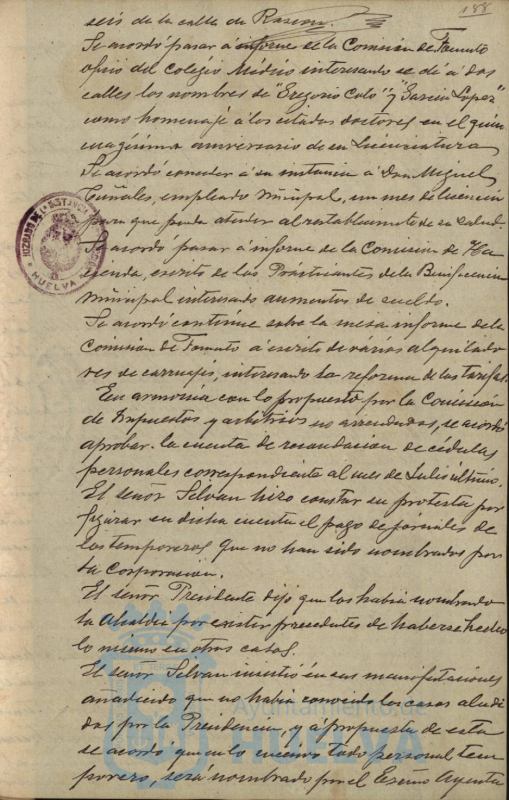 188
seis de la calle de Rascon.
Se acordó pasar á informe de la Comisión de Fomento
oficio del Colegio Médico interesando se dé á dos
calles los nombres de "Gregorio Coto" y "Garcia Lopez"
como homenaje á los citados doctores en el quin
cuagésimo aniversario de su Licenciatura
Se acordó conceder á su instancia á Don Miguel
Cuñales, empleado municipal, un mes de licencia
para que pueda atender al restablecimiento de su salud.
Se acordó pasar á informe de la Comision de Ha
cienda, escrito de los Practicantes de la Beneficencia
Municipal interesando aumentos de sueldo.
Se acordó continúe sobre la mesa informe de la
Comision de Fomento á escrito de várias alquilado
res de carruajes, interesando la reforma de las tarifas.
En armonía con lo propuesto por la Comisión
de Impuestos y arbitrios no arrendados, se acordó
aprobar la cuenta de recaudacion de cédulas
personales correspondiente al mes de Julio último.
El señor Selvan hizo constar su protesta por
figurar en dicha cuenta el pago de jornales de
los temporeros que no han sido nombrados por
la Corporacion.
El señor Presidente dijo que los había nombrado
la Alcaldia por existir precedentes de haberse hecho
lo mismo en otros casos.
El señor Selvan insistió en sus manifestaciones
añadiendo que no había conocido los casos aludi
dos por la Presidencia, y á propuesta de esta
se acordó que en lo sucesivo todo personal tem
porero, será nombrado por el Excmo Ayunta
JUZGADO DE 1ª INSTANCIA
HUELVA
Ayuntamiento de
HUELVA